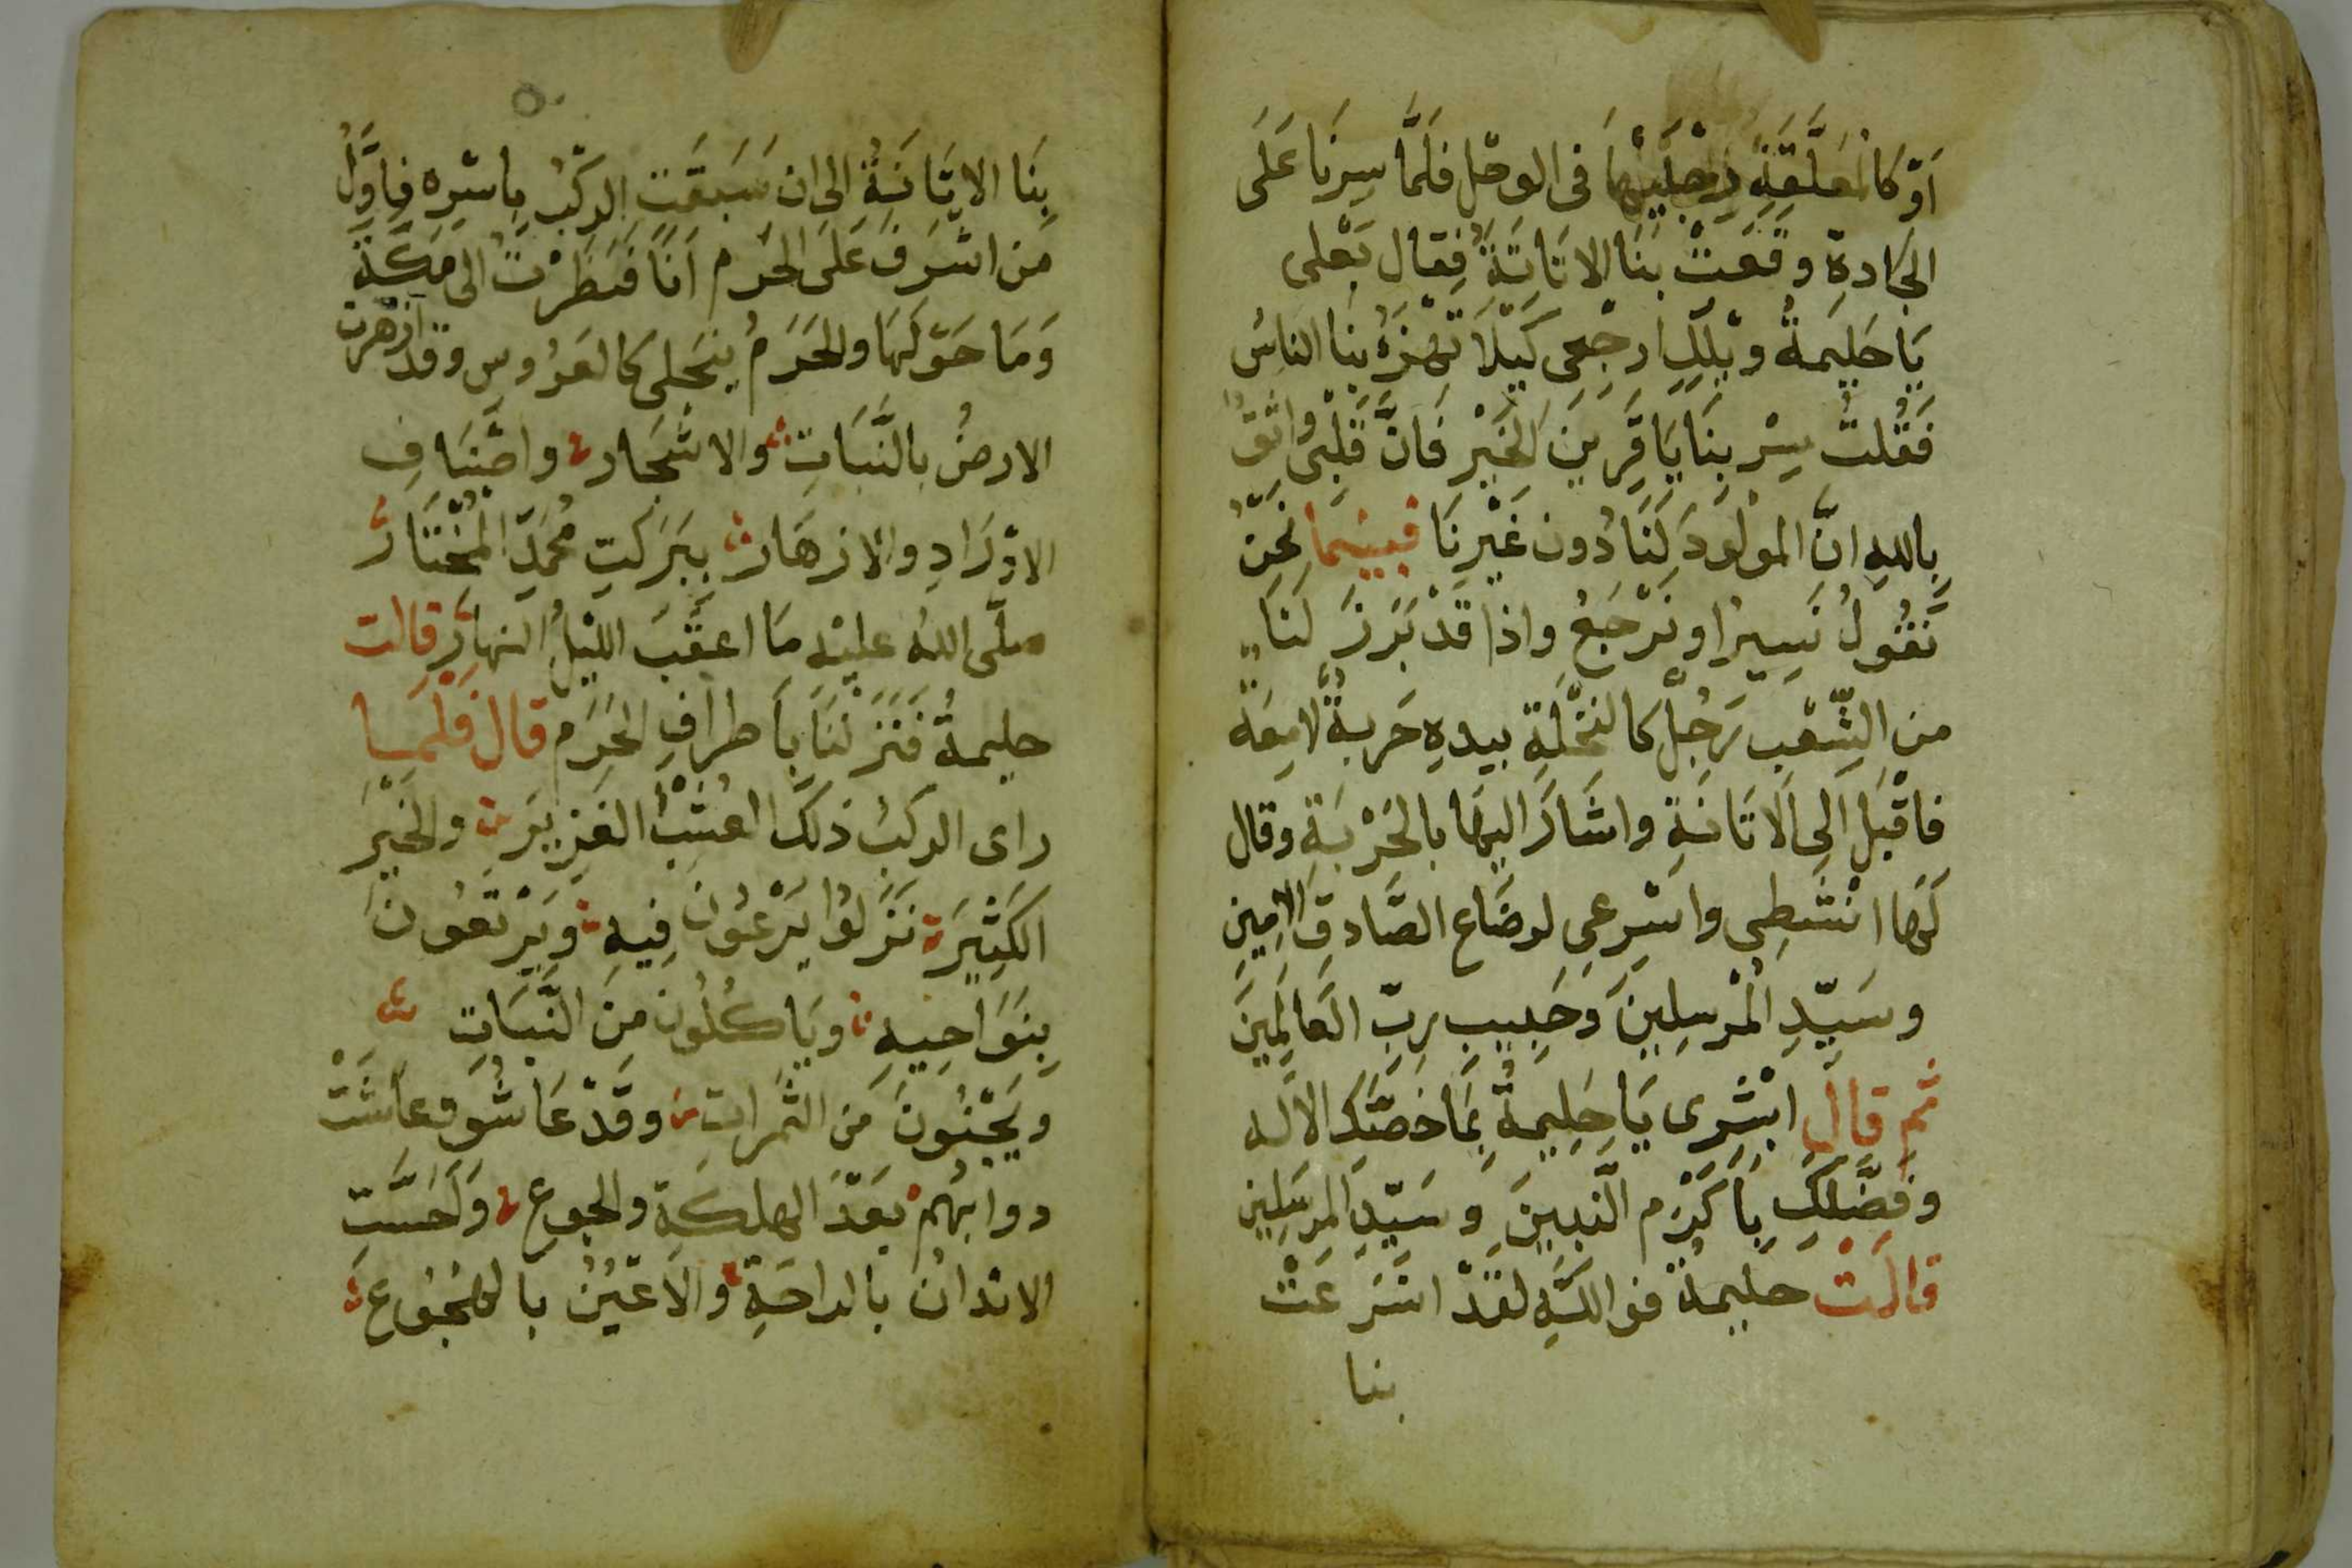 اَوْ كَالمُعَلَّقَةِ رِجْلَيْهَا فى الوحْل فلَمَّا سِرْنَا عَلَى
الجَادةِ وقَعَتْ بنَا الاتَانَةُ فقال بَعْلى
يَا حَليمةُ ويْلَكِ ارجِعِى كَيْلَا تَهْزَءُ بنَا الناسُ
فَقُلتُ سِرْ بِنَا يَا قَرِينَ الخَيْرِ فَانَّ قَلْبِى واثقٌ
بِاللهِ انَّ المَولُودَ لَنَا دُونَ غَيْرِنَا فبَيْنَمَا نَحْنُ
نَقُولُ نَسِيرُ او نَرْجَعُ واذا قَدْ بَرَزَ لَنَا
من الشِّعْبِ رَجُلٌ كالنَّخْلَةِ بيدهِ حَربةٌ لامِعَة
فاقْبَلَ اَلِى الَاتَانَةِ واشَارَ اليهَا بالحَرْبَةِ وقال
لَهَا انْشَطِى واسْرِعى لرضَاع الصَّادقِ الامِينِ
وسَيّدِ المُرْسِلِينَ وَحَبِيبِ رَبِّ العَالَمِينَ
ثم قال ابْشِرى يَا حَلِيمةُ بِمَا خصَّكِ الالَه
وفضَّلَكِ بِاَكْرَم النَّبيينَ وسَيّدِ المرسَلِينَ
قالَتْ حليمةُ فواللهِ لقَدْ اسْرَعَتْ
بنا
بِنَا الاتَانَةُ الى ان سَبَقَتِ الركْبَ باسْرِه فاوَّلُ
مَن اشْرَفَ عَلَى الحَرَم اَنَا فَنَظَرْتُ الى مَكَّةَ
وَمَا حَوْلَهَا والحَرَمُ ينجَلى كالعَرُوس وقد ازهَرت
الارضُ بالنَّبَاتِ والاشْجَار واصْنَافِ
الاوْرَادِ والازهَار بِبَرَكَتِ مُحمَّدِ المُخْتَارْ
صلّى اللهُ عليْهِ مَا اعقَبَ الليْلُ النهار قالت
حليمةُ فَنَزَلْنَا بَاَطرافِ الحَرَم قال فَلَمَّا
راى الركبُ ذلكَ العُشْبُ الغَزِيرَ والخَيْرَ
الكَثِيرَ نَزَلُوا يَرْعَوْنَ فِيهِ ويَرْتَعُونَ
بِنَوَاحِيهِ ويَاكُلُونَ مِنَ النَّبَاتِ
ويَجْتَنُونَ مَن الثمَرَات وقَدْ عَاشُو وعاشَتْ
دوابهُم بَعْدَ الهلكَةِ والجوع وَاَحَسَّتِ
الابْدانُ بالراحَةِ والَاعْيُنُ بالهُجُوع